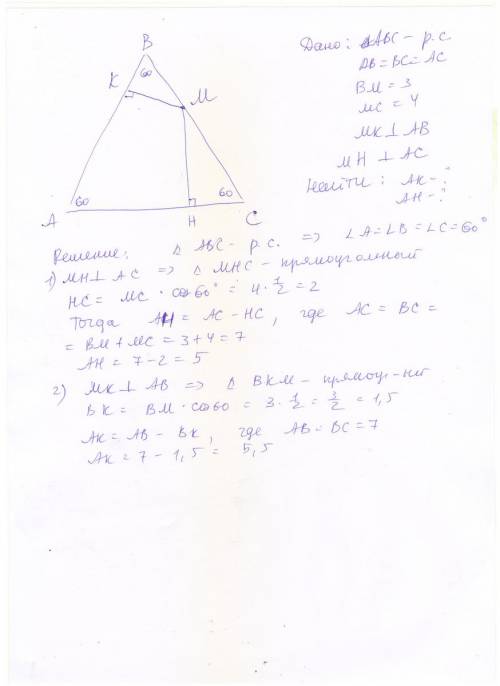 B
K
60
M
60
60
A
H
C
Дано: ΔABC – р.с
AB = BC = AC
BM = 3
MC = 4
MK ⊥ AB
MH ⊥ AC
Найти: AK – ?
AH – ?
Решение: Δ ABC – р.с. => ∠A = ∠B = ∠C = 60°
1) MH ⊥ AC => Δ MHC – прямоугольный
HC = MC · cos 60° = 4 · 1/2 = 2
Тогда AH = AC – HC, где AC = BC =
= BM + MC = 3 + 4 = 7
AH = 7 – 2 = 5
2) MK ⊥ AB => Δ BKM – прямоуг-ный
BK = BM · cos 60 = 3 · 1/2 = 3/2 = 1,5
AK = AB – BK, где AB = BC = 7
AK = 7 – 1,5 = 5,5